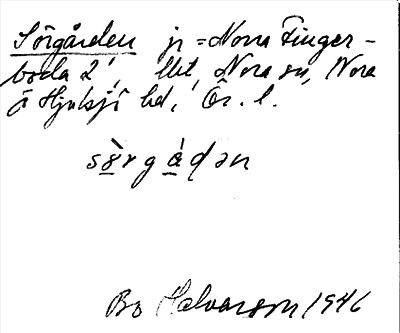 Sörgården jr = Norra Finger-
boda 2¹, Nora sn, Nora
o Hjulsjö hd, Ör. l.
sörgådən
Bo Halvarson 1946